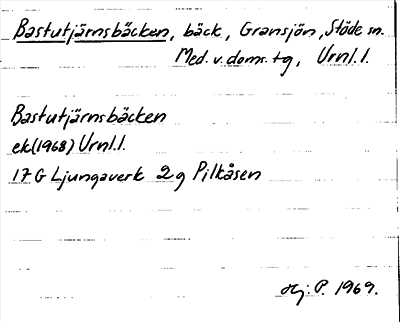 Bastutjärnsbäcken, bäck, Gransjön, Stöde sn.
Med. v. doms. tg, Urnl. l.
Bastutjärnsbäcken
ek(1968) Urnl. l.
17 G Ljungaverk 2 g Pilkåsen
Hj. P. 1969.